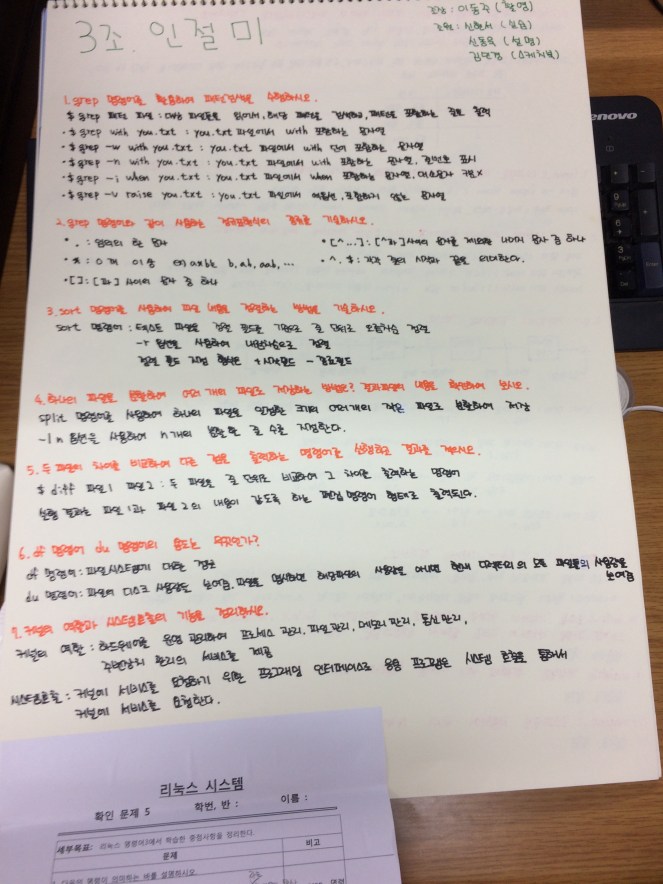 3조. 인절미
조장 : 이동주 (팻말)
조원 : 신현서 (실음)
신동욱 (설명)
김민경 (스케치북)
1. grep 명령어를 활용하여 패턴검색을 수행하시오.
$ grep 패턴 파일 : 대상 파일들을 읽어서, 해당 패턴을 검색하고, 패턴을 포함하는 줄로 출력
· $ grep with you.txt : you.txt 파일에서 with 포함하는 문자열
· $ grep -w with you.txt : you.txt 파일에서 with 단어 포함하는 문자열
· $ grep -n with you.txt : you.txt 파일에서 with 포함하는 문자열, 줄번호 표시
· $ grep -i when you.txt : you.txt 파일에서 when 포함하는 문자열, 대소문자 구분X
· $ grep -v raise you.txt : you.txt 파일에서 raise 포함하지 않는 문자열
2. grep 명령어와 같이 사용하는 정규표현식의 종류를 기술하시오.
· . : 임의의 한 문자
· [^...] : [^과 ] 사이의 문자를 제외한 나머지 문자 중 하나
· * : 0개 이상 ex) a*b는 b, ab, aab, ...
· ^, $ : 각각 줄의 시작과 끝을 의미한다.
· [ ] : [과 ] 사이의 문자 중 하나
3. sort 명령어를 사용하여 파일 내용을 정렬하는 방법을 기술하시오.
sort 명령어 : 텍스트 파일을 정렬 필드를 기준으로 줄 단위로 오름차순 정렬
-r 옵션을 사용하여 내림차순으로 정렬
정렬 필드 지정 형식은 +시작필드 -종료필드
4. 하나의 파일을 분할하여 여러 개의 파일로 저장하는 방법은? 결과파일의 내용을 확인하여 보시오.
split 명령어를 사용하여 하나의 파일을 일정한 크기의 여러개의 작은 파일로 분할하여 저장
-l n 옵션을 사용하여 n개의 분할할 줄 수를 지정한다.
5. 두 파일의 차이를 비교하여 다른 점을 출력하는 명령어를 실행하고 결과를 적으시오.
$ diff 파일1 파일2 : 두 파일을 줄 단위로 비교하여 그 차이를 출력하는 명령어
실행 결과는 파일1과 파일2의 내용이 같도록 하는 편집 명령어 형태로 출력된다.
6. df 명령어 du 명령어의 용도는 무엇인가?
df 명령어 : 파일시스템에 대한 정보
du 명령어 : 파일의 디스크 사용량을 보여줌, 파일을 명시하면 해당파일의 사용량을 아니면 현재 디렉토리의 모든 파일들의 사용량을 보여줌
7. 커널의 역할과 시스템호출의 기능을 정리하시오.
커널의 역할 : 하드웨어를 운영 관리하여 프로세스 관리, 파일관리, 메모리 관리, 통신 관리,
주변장치 관리의 서비스를 제공
시스템호출 : 커널에 서비스를 요청하기 위한 프로그래밍 인터페이스로 응용 프로그램은 시스템 호출을 통해서
커널에 서비스를 요청한다.
lenovo
리눅스 시스템
확인 문제 5 학번, 반 : 이름 :
세부목표: 리눅스 명령어3에서 학습한 중점사항을 정리한다.
문제 비고
1. 다음의 명령이 의미하는 바를 설명하시오.